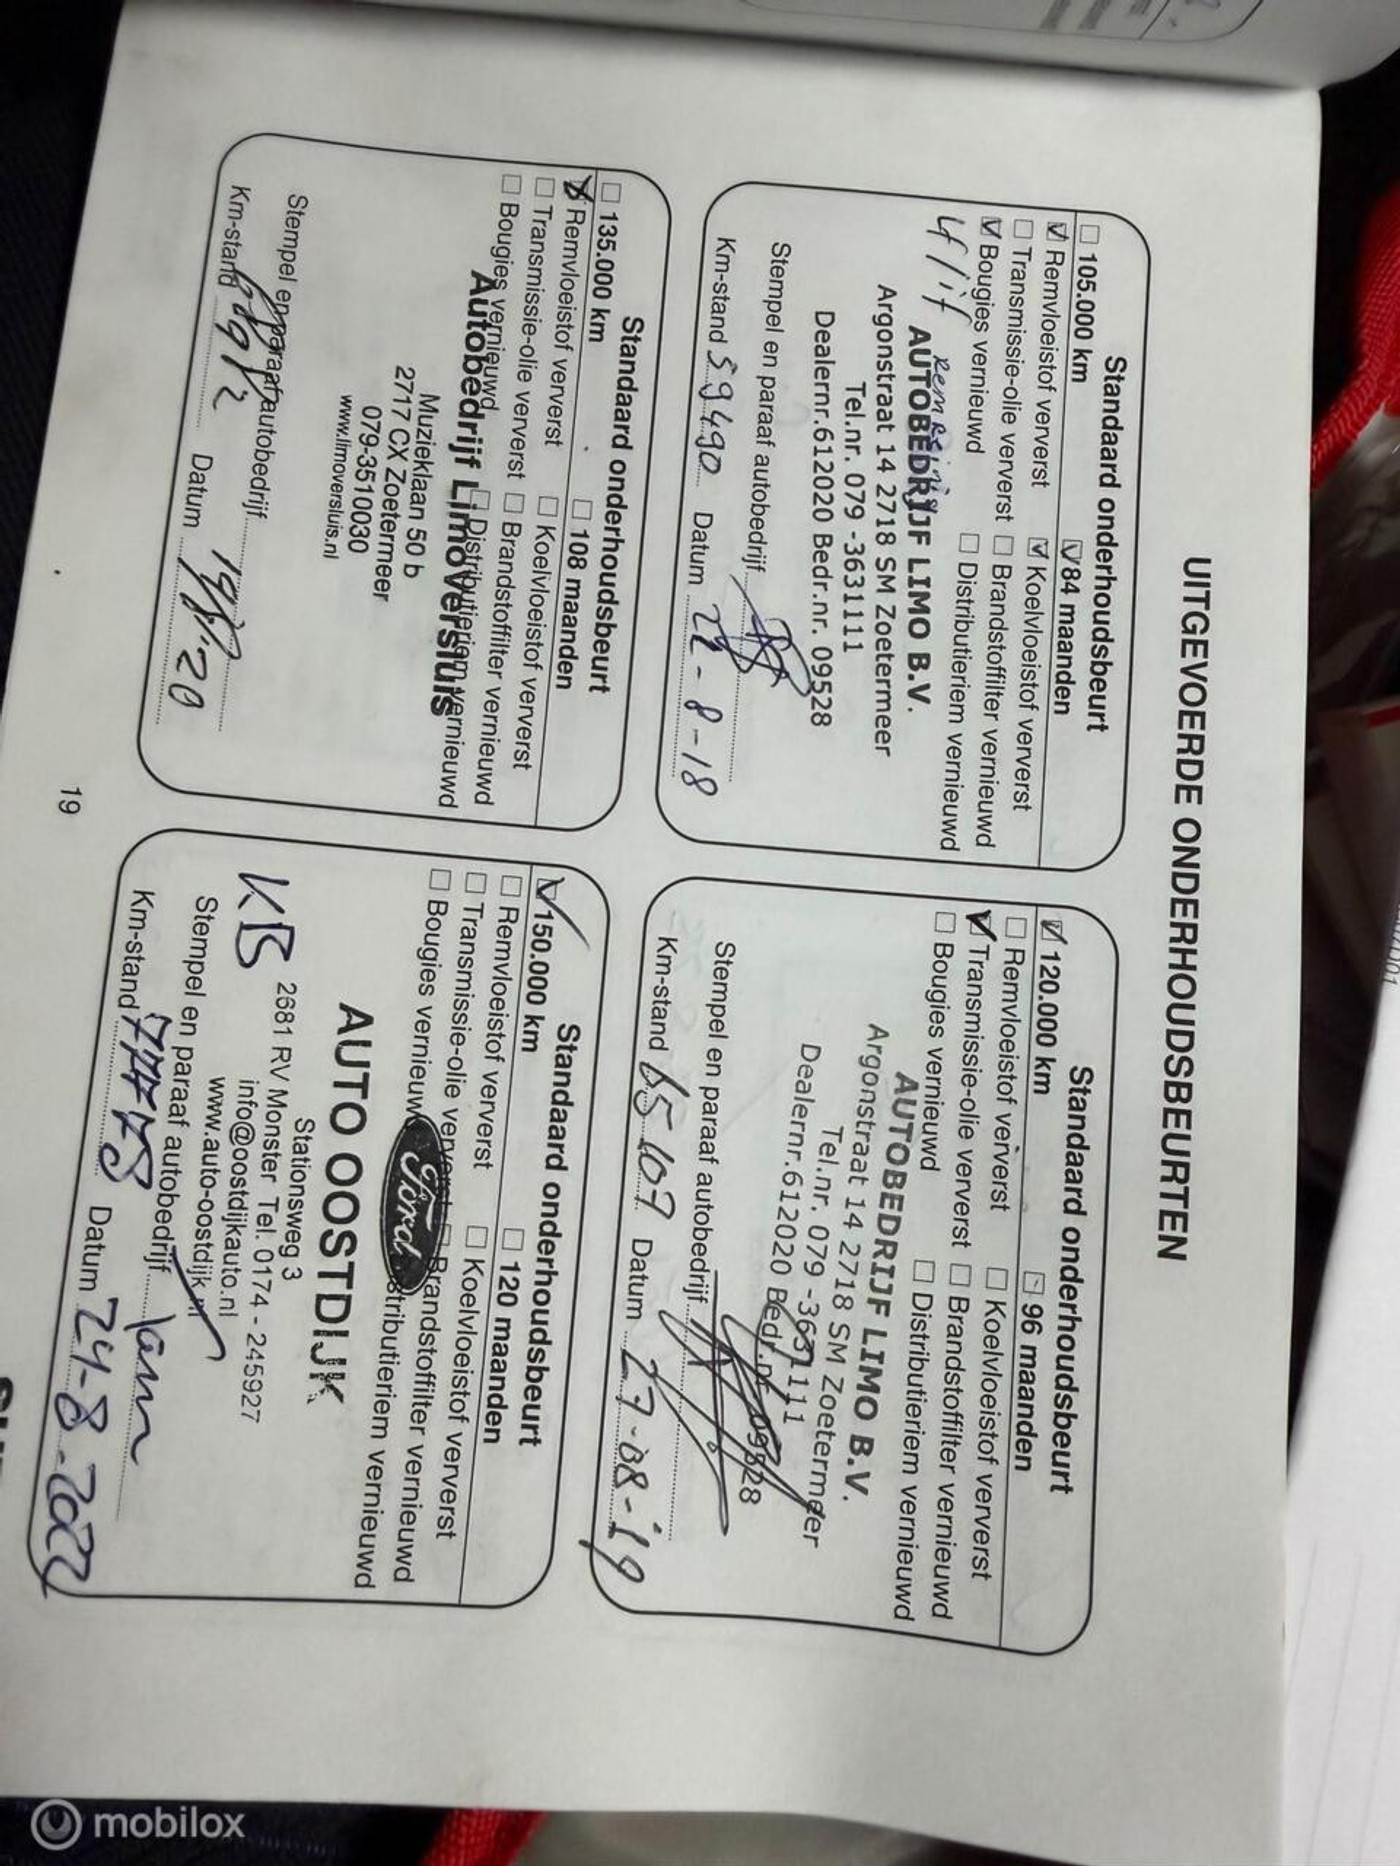 UITGEVOERDE ONDERHOUDSBEURTEN
Standaard onderhoudsbeurt
105.000 km 84 maanden
Remvloeistof ververst Koelvloeistof ververst
Transmissie-olie ververst Brandstoffilter vernieuwd
Bougies vernieuwd Distributieriem vernieuwd
AUTOBEDRIJF LIMO B.V.
Argonstraat 14 2718 SM Zoetermeer
Tel.nr. 079 -3631111
Dealernr.612020 Bedr.nr. 09528
Stempel en paraaf autobedrijf
Km-stand 59490 Datum 27-8-18
Standaard onderhoudsbeurt
120.000 km 96 maanden
Remvloeistof ververst Koelvloeistof ververst
Transmissie-olie ververst Brandstoffilter vernieuwd
Bougies vernieuwd Distributieriem vernieuwd
AUTOBEDRIJF LIMO B.V.
Argonstraat 14 2718 SM Zoetermeer
Tel.nr. 079 -3631111
Dealernr.612020 Bedr.nr. 09528
Stempel en paraaf autobedrijf
Km-stand 65107 Datum 27-08-19
Standaard onderhoudsbeurt
135.000 km 108 maanden
Remvloeistof ververst Koelvloeistof ververst
Transmissie-olie ververst Brandstoffilter vernieuwd
Bougies vernieuwd Distributieriem vernieuwd
Autobedrijf Limo Versluis
Muzieklaan 50 b
2717 CX Zoetermeer
079-3510030
www.limoversluis.nl
Stempel en paraaf autobedrijf
Km-stand Datum
Standaard onderhoudsbeurt
150.000 km 120 maanden
Remvloeistof ververst Koelvloeistof ververst
Transmissie-olie ververst Brandstoffilter vernieuwd
Bougies vernieuwd Distributieriem vernieuwd
Ford
AUTO OOSTDIJK
Stationsweg 3
KB 2681 RV Monster Tel. 0174 - 245927
info@oostdijkauto.nl
www.auto-oostdijk.nl
Stempel en paraaf autobedrijf
Km-stand Datum 24-8-2022
19
mobilox